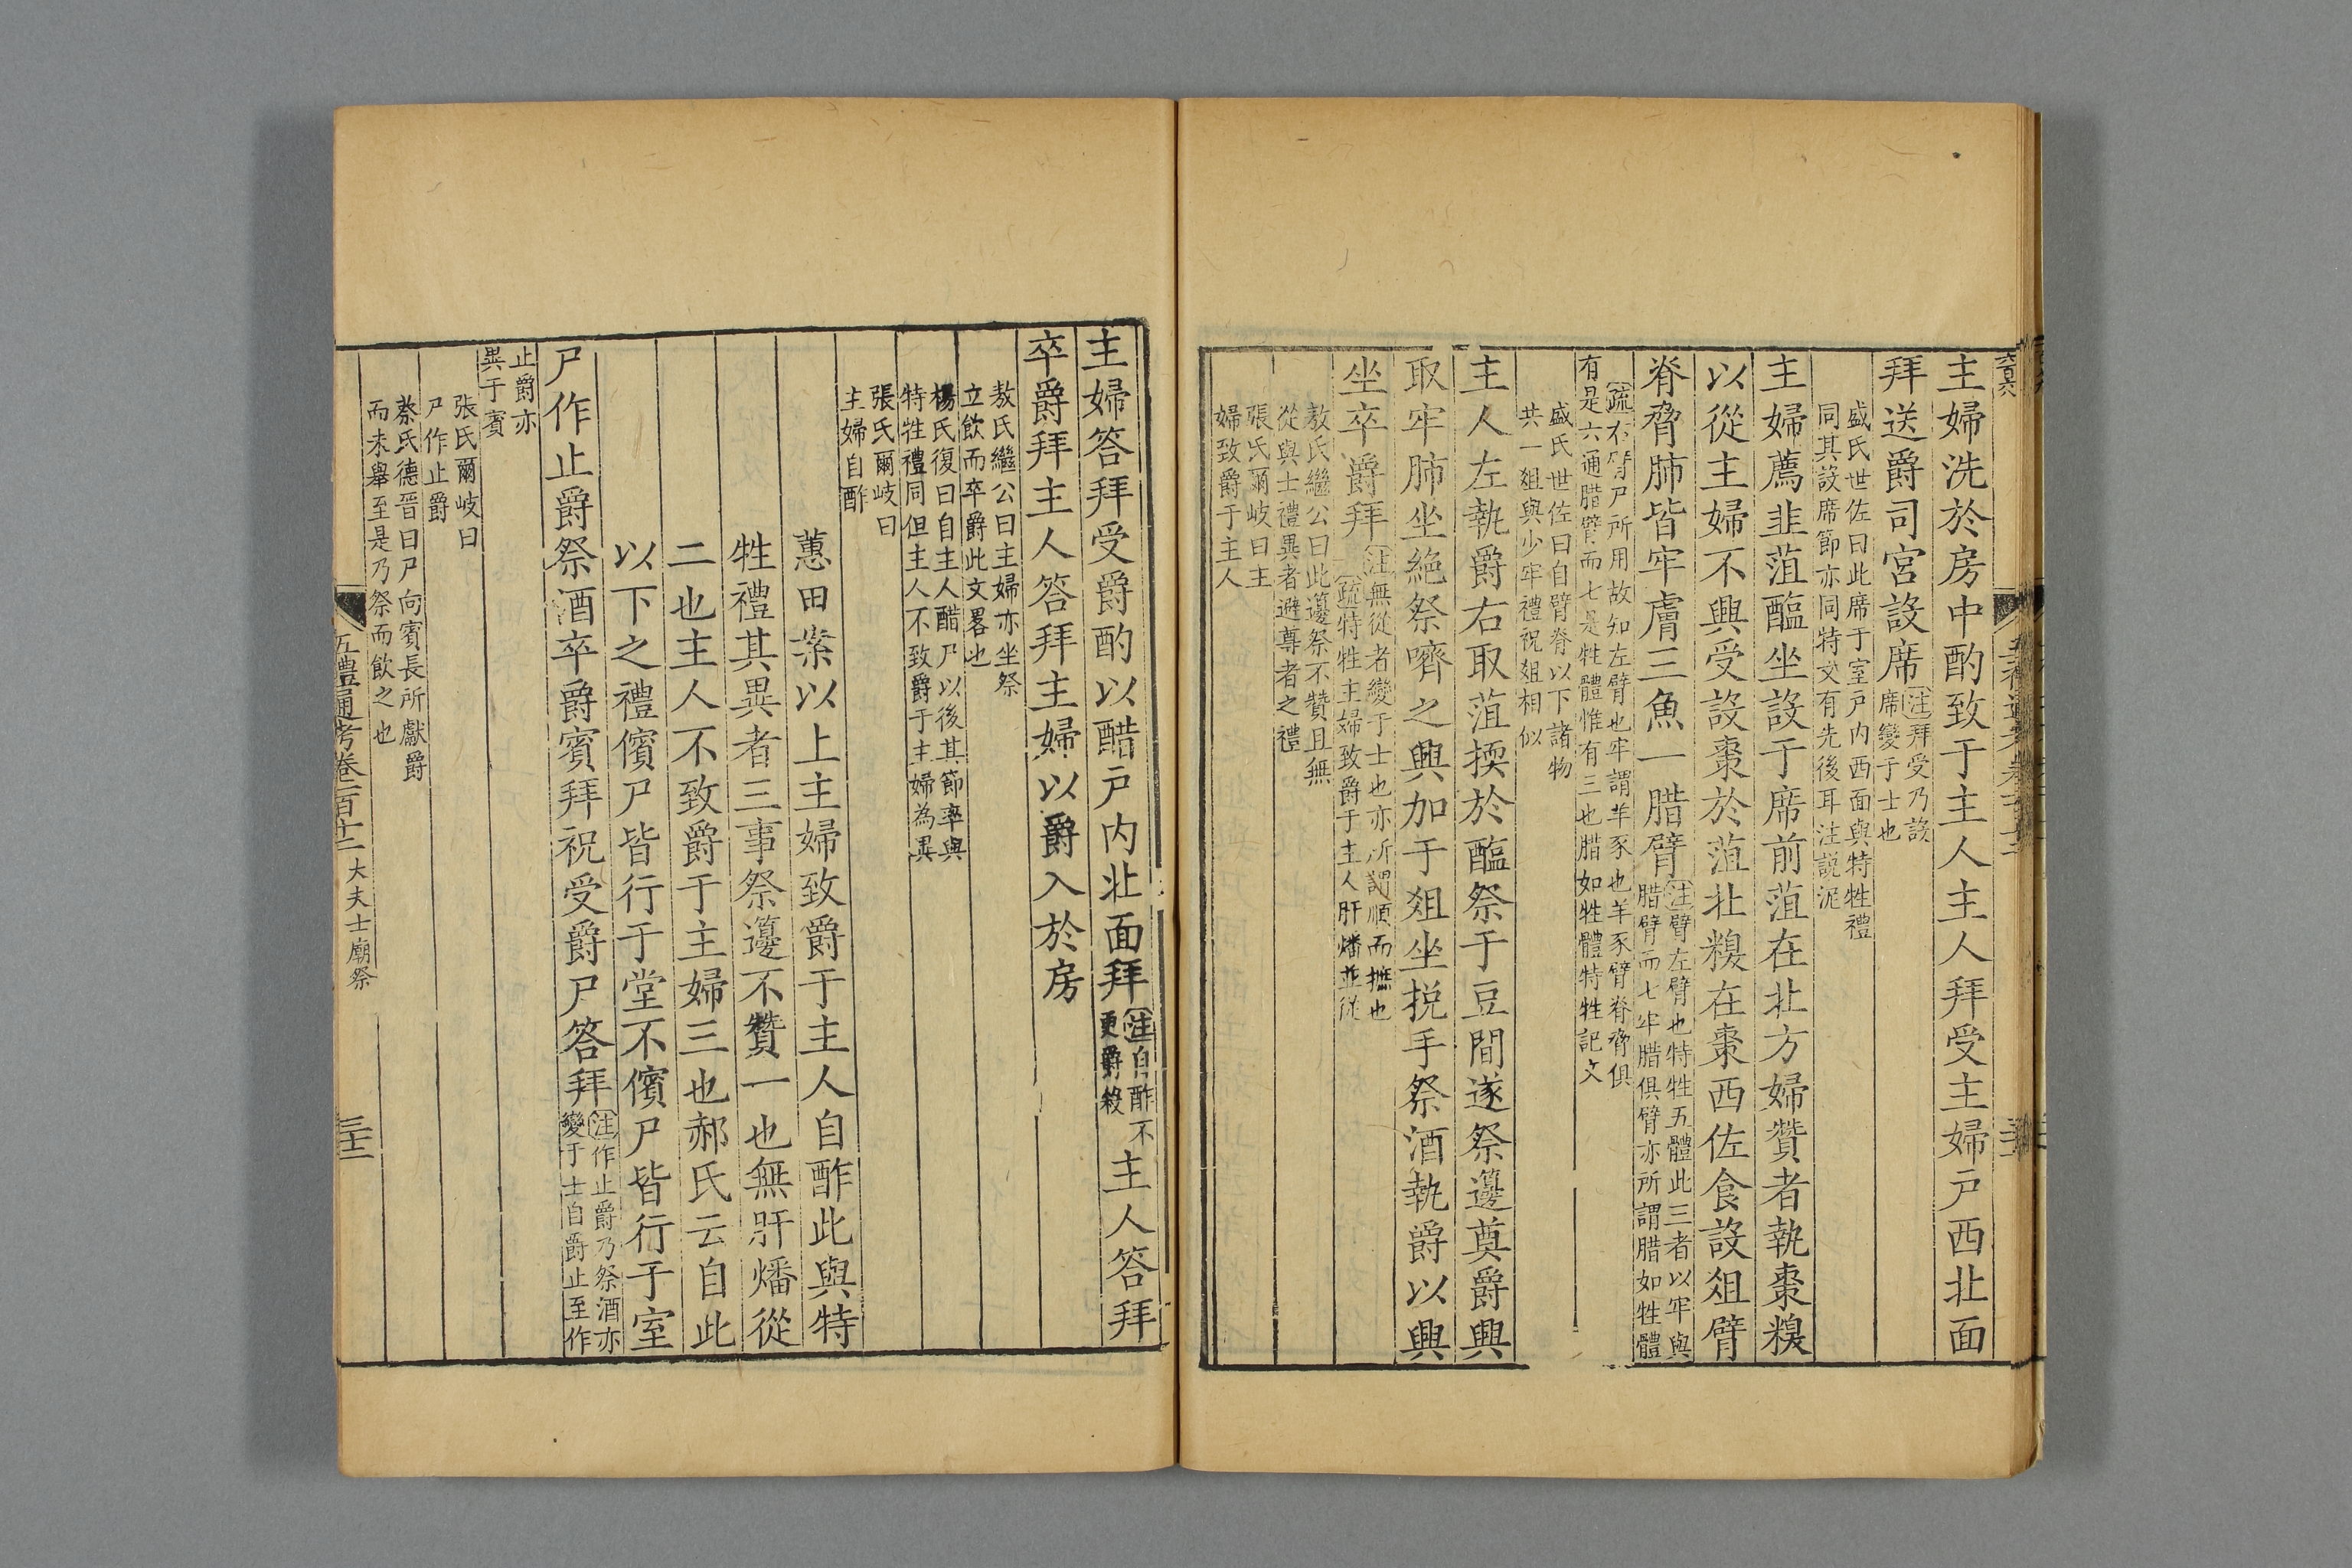 主婦洗於房中酌致于主人主人拜受主婦戸西北面
拜送爵司宮設席注拜受乃設
席變于士也
盛氏世佐曰此席于室戸内西面與特牲禮
同其設席節亦同特文有先後耳注説泥
主婦薦韭菹醢坐設于席前菹在北方婦贊者執棗糗
以從主婦不興受設棗於菹北糗在棗西佐食設俎臂
脊脅肺皆牢膚三魚一腊臂注臂左臂也特牲五體此三者以牢與
腊臂而七牢腊俱臂亦所謂腊如牲體
疏不臂尸所用故知左臂也牢謂羊豕也羊豕臂脊脅俱
有是六通腊臂而七是牲體惟有三也腊如牲體特牲記文
盛氏世佐曰自臂脊以下諸物
共一俎與少牢禮祝俎相似
主人左執爵右取菹擩於醢祭于豆間遂祭籩奠爵興
取牢肺坐絶祭嚌之興加于俎坐挩手祭酒執爵以興
坐卒爵拜注無從者變于士也亦所謂順而摭也
疏特牲主婦致爵于主人肝燔並從
敖氏繼公曰此籩祭不贊且無
從與士禮異者避尊者之禮
張氏爾岐曰主
婦致爵于主人
主婦答拜受爵酌以醋戸内北面拜注自酢不
更爵殺
主人答拜
卒爵拜主人答拜主婦以爵入於房
敖氏繼公曰主婦亦坐祭
立飲而卒爵此文畧也
楊氏復曰自主人醋乃以後其節率與
特牲禮同但主人不致爵于主婦為異
張氏爾岐曰
主婦自酢
蕙田案以上主婦致爵于主人自酢此與特
牲禮其異者三事祭籩不贊一也無肝燔從
二也主人不致爵于主婦三也郝氏云自此
以下之禮儐尸皆行于堂不儐尸皆行于室
尸作止爵祭酒卒爵賓拜祝受爵尸答拜注作止爵乃祭酒亦
變于士自爵止至作
止爵亦
異于賓
張氏爾岐曰
尸作止爵
蔡氏德晉曰尸向賓長所獻爵
而未舉至是乃祭而飲之也
五禮通考卷一百十二 大夫士廟祭
三十二